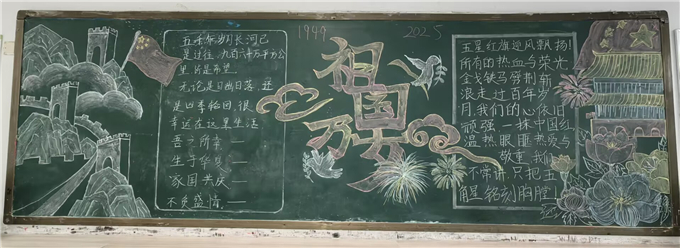 五千年岁月长河已
是过往,九百六十万平方公
里 片是希望。
无论是日出日落 还
是四季轮回,很
幸运在这里生活
吾之所幸 —
生于华夏 —
家国共庆 —
不负盛情 —
1949
2025
祖
国
万
安
五星红旗迎风飘扬!
所有的热血与荣光
金戈铁马劈荆斩
浪走过百年岁
月,我们的心依旧
顽强一抹中国红
温热眼眶热爱与
敬重 我们
不常讲只把五
角星铭刻胸膛!